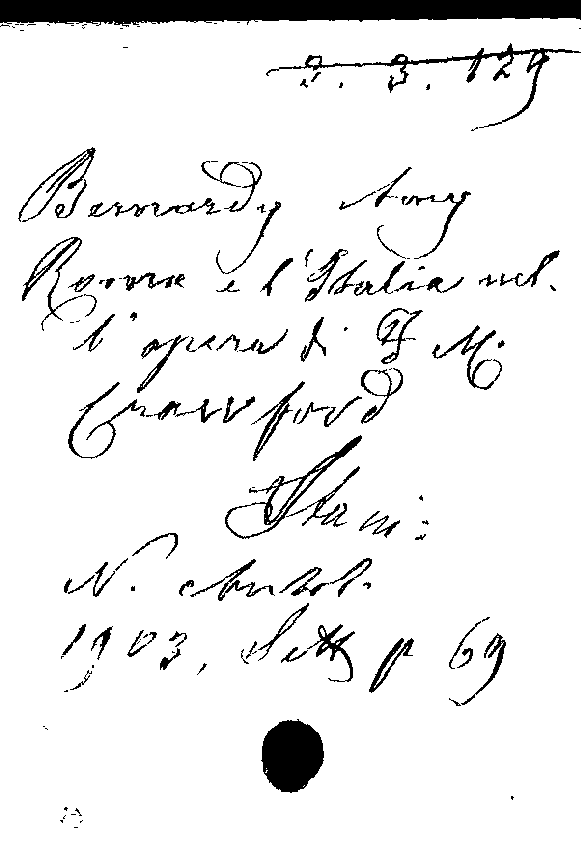 2. 3. 129
Bernardy Amy
Roma e l'Italia nel-
l'opera di F M.
Crawford
Stam:
N. Antol.
1903, Sett p 69